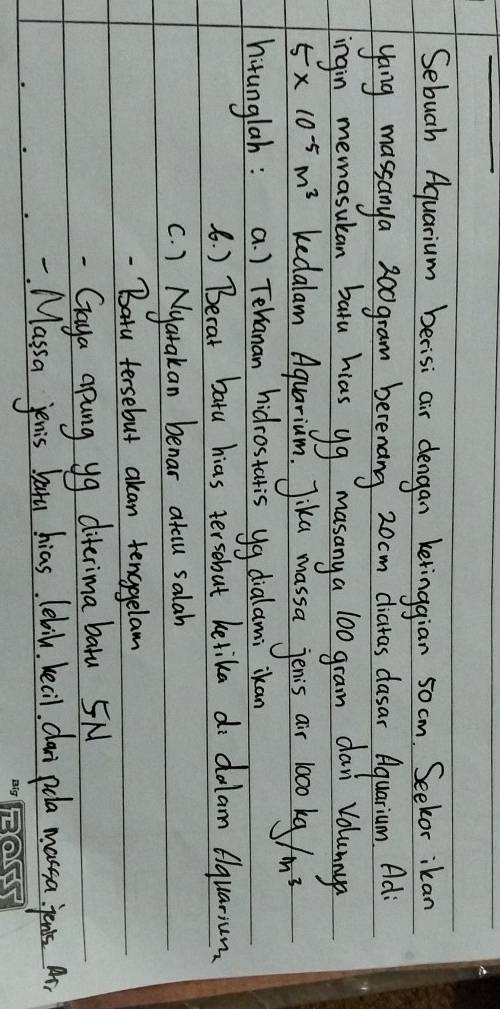 Sebuah Aquarium berisi air dengan ketinggian 50 cm. Seekor ikan
yang massanya 200 gram berenang 20 cm diatas dasar Aquarium. Adi
ingin memasukan batu hias yg masanya 100 gram dan Volumnya
5 × 10⁻⁵ m³ kedalam Aquarium. Jika massa jenis air 1000 kg/m³
hitunglah : a.) Tekanan hidrostatis yg dialami ikan
b.) Berat batu hias tersebut ketika di dalam Aquarium
c.) Nyatakan benar atau salah
- Batu tersebut akan tenggelam
- Gaya apung yg diterima batu 5N
- Massa jenis batu hias lebih kecil dari pda massa jenis Air
Big BOSS